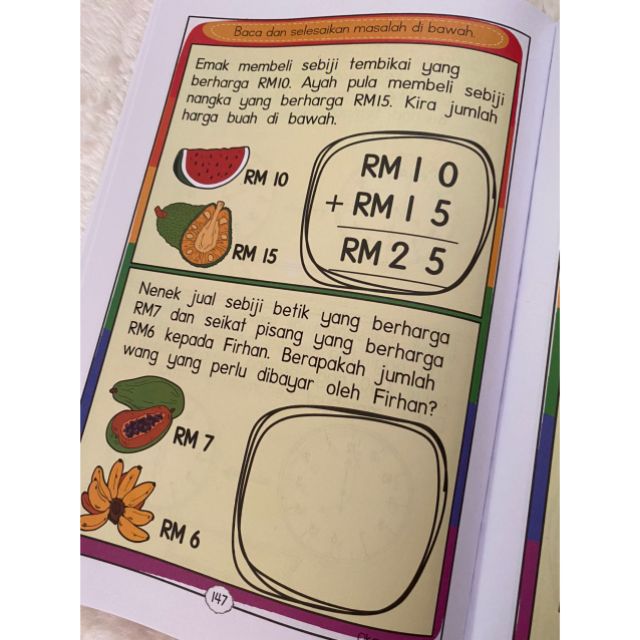 Baca dan selesaikan masalah di bawah.
Emak membeli sebiji tembikai yang
berharga RM10. Ayah pula membeli sebiji
nangka yang berharga RM15. Kira jumlah
harga buah di bawah.
RM 10
RM 15
RM 1 0
+ RM 1 5
RM 2 5
Nenek jual sebiji betik yang berharga
RM7 dan seikat pisang yang berharga
RM6 kepada Firhan. Berapakah jumlah
wang yang perlu dibayar oleh Firhan?
RM 7
RM 6
147